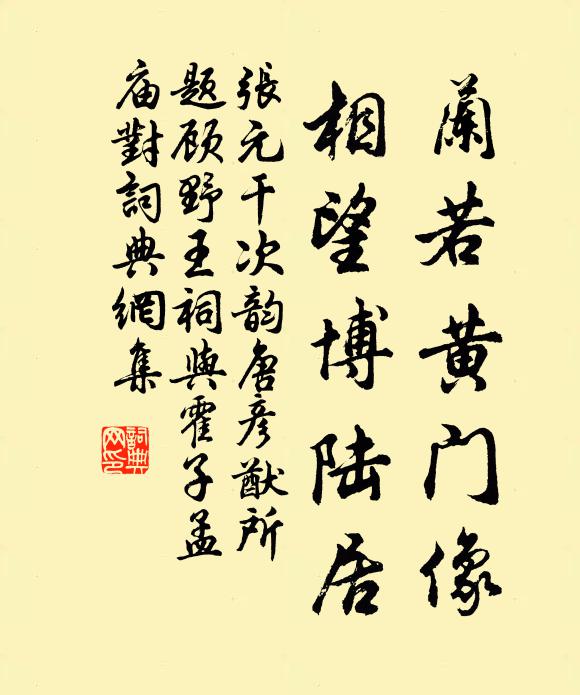 蘭若黄门像
相望博陆居
張元干次韵唐彦猷所
题顾野王祠與霍子孟
庙對詞典網集
詞典网印